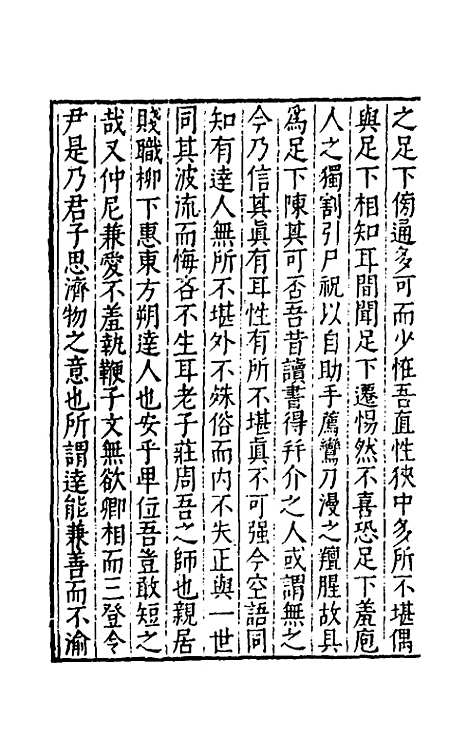 之足下傍通多可而少恠吾直性狹中多所不堪偶
與足下相知耳間聞足下遷惕然不喜恐足下羞庖
人之獨割引尸祝以自助手薦鸞刀漫之羶腥故具
爲足下陳其可否吾昔讀書得幷介之人或謂無之
今乃信其眞有耳性有所不堪眞不可强今空語同
知有達人無所不堪外不殊俗而内不失正與一世
同其波流而悔吝不生耳老子莊周吾之師也親居
賤職柳下惠東方朔達人也安乎卑位吾豈敢短之
哉又仲尼兼愛不羞執鞭子文無欲卿相而三登令
尹是乃君子思濟物之意也所謂達能兼善而不渝